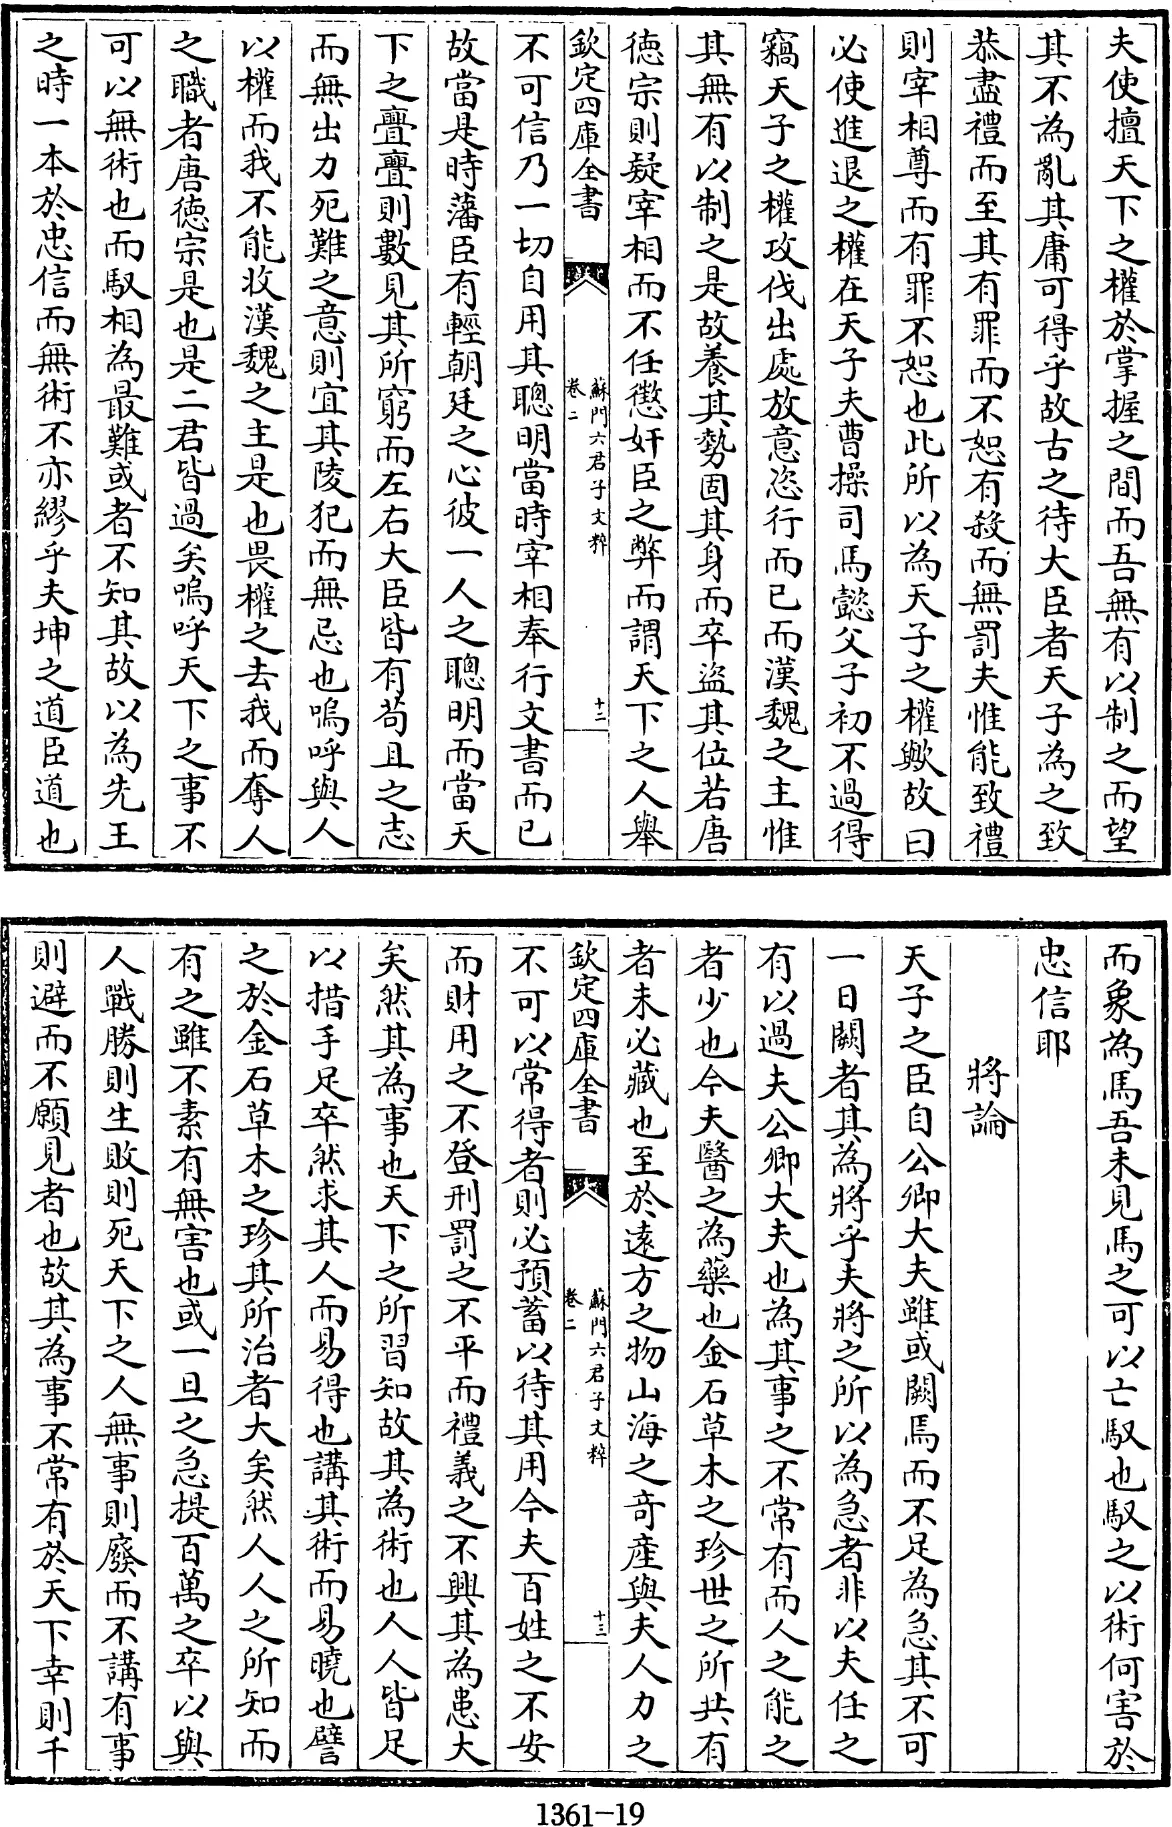 夫使擅天下之權於掌握之間而吾無有以制之而望
其不為亂其庸可得乎故古之待大臣者天子為之致
恭盡禮而至其有罪而不恕有殺而無罰夫惟能致禮
則宰相尊而有罪不恕也此所以為天子之權歟故曰
必使進退之權在天子夫曹操司馬懿父子初不過得
竊天子之權攻伐出處放意恣行而已而漢魏之主惟
其無有以制之是故養其勢固其身而卒盜其位若唐
德宗則疑宰相而不任懲奸臣之弊而謂天下之人舉
欽定四庫全書
蘇門六君子文粹
卷二
十二
不可信乃一切自用其聰明當時宰相奉行文書而已
故當是時藩臣有輕朝廷之心彼一人之聰明而當天
下之亹亹則數見其所窮而左右大臣皆有苟且之志
而無出力死難之意則宜其陵犯而無忌也嗚呼與人
以權而我不能收漢魏之主是也畏權之去我而奪人
之職者唐德宗是也是二君皆過矣嗚呼天下之事不
可以無術也而馭相為最難或者不知其故以為先王
之時一本於忠信而無術不亦繆乎夫坤之道臣道也
而象為馬吾未見馬之可以亡馭也馭之以術何害於
忠信耶
將論
天子之臣自公卿大夫雖或闕焉而不足為急其不可
一日闕者其為將乎夫將之所以為急者非以夫任之
有以過夫公卿大夫也為其事之不常有而人之能之
者少也今夫醫之為藥也金石草木之珍世之所共有
者未必藏也至於遠方之物山海之奇產與夫人力之
欽定四庫全書
蘇門六君子文粹
卷二
十三
不可以常得者則必預蓄以待其用今夫百姓之不安
而財用之不登刑罰之不平而禮義之不興其為患大
矣然其為事也天下之所習知故其為術也人人皆足
以措手足卒然求其人而易得也講其術而易曉也譬
之於金石草木之珍其所治者大矣然人人之所知而
有之雖不素有無害也或一旦之急提百萬之卒以與
人戰勝則生敗則死天下之人無事則廢而不講有事
則避而不願見者也故其為事不常有於天下幸則千
1361-19